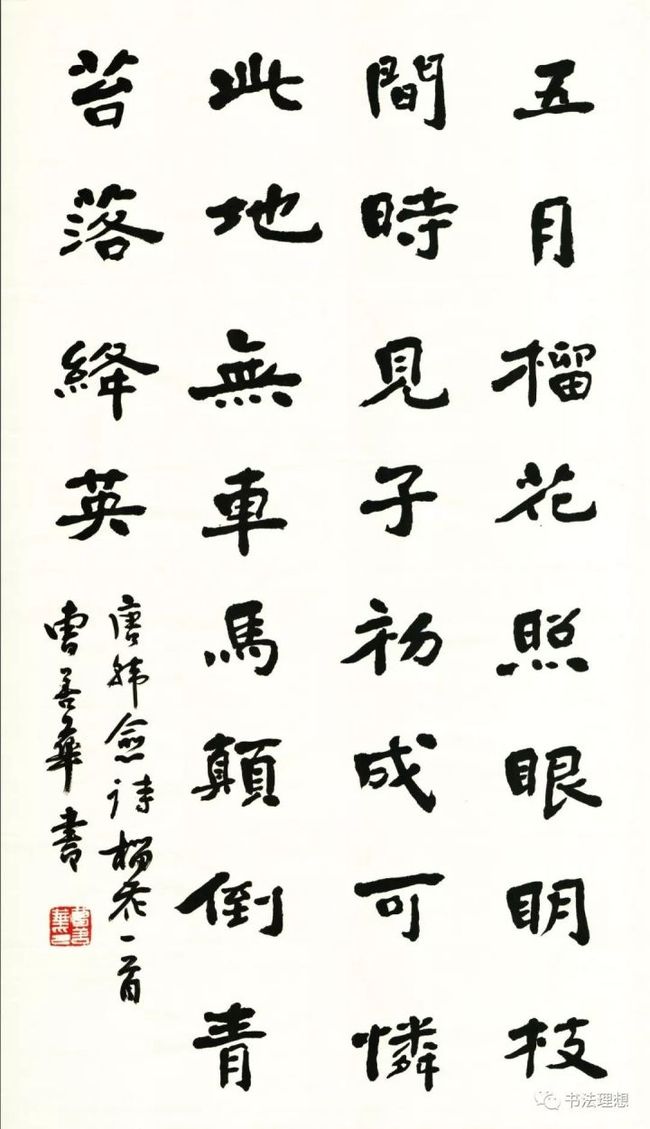 五月榴花照眼明枝
間時見子初成可憐
此地無車馬顛倒青
苔落絳英
唐韓愈詩榴花一首
曹善華書
书法理想